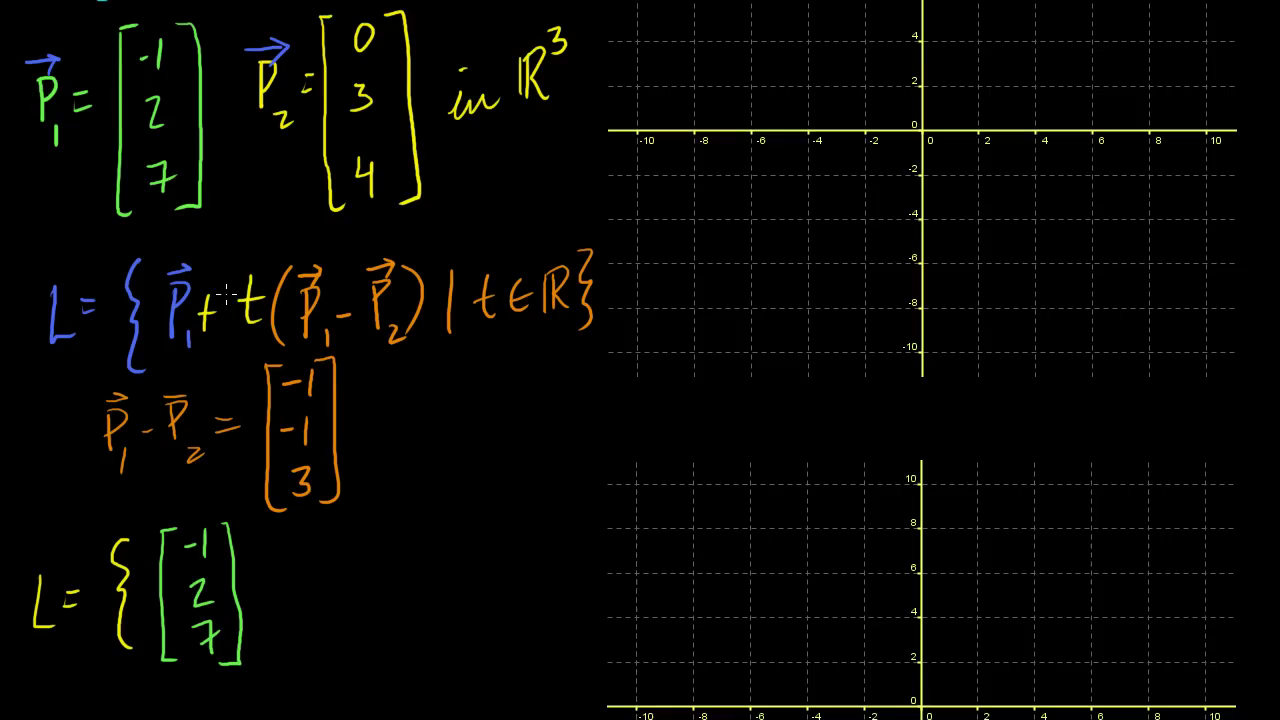 P⃗₁ = [-1 2 7] P⃗₂ = [0 3 4] in ℝ³
L = { P⃗₁ + t(P⃗₁ - P⃗₂) | t ∈ ℝ}
P⃗₁ - P⃗₂ = [-1 -1 3]
L = { [-1 2 7]
4
2
0
-10 -8 -6 -4 -2 0 2 4 6 8 10
-2
-4
-6
-8
-10
10
8
6
4
2
0
-10 -8 -6 -4 -2 0 2 4 6 8 10